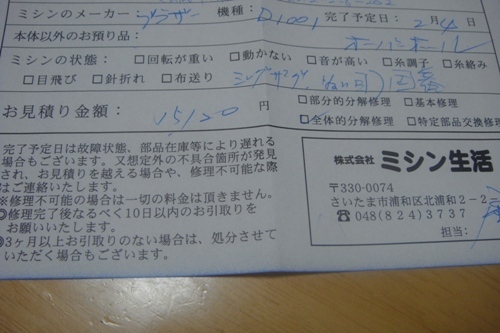 ミシンのメーカー ブラザー 機種: D1001 完了予定日: 2月4日
本体以外のお預り品: オーバーホール
ミシンの状態: □回転が重い □動かない □音が高い □糸調子 □糸絡み
□目飛び □針折れ □布送り
お見積り金額: 15120 円
□部分的分解修理 □基本修理
□全体的分解修理 □特定部品交換修理
完了予定日は故障状態、部品在庫等により遅れる
場合もございます。又想定外の不具合箇所が発見
され、お見積を越える場合や、修理不可能な際
はご連絡いたします。
※修理不可能な場合は一切の料金は頂きません。
◎修理完了後なるべく10日以内のお引取りを
お願いいたします。
◎3ヶ月以上お引取りのない場合は、処分させて
いただく場合もございます。
株式会社 ミシン生活
〒330-0074
さいたま市浦和区北浦和2-2
☎048(824)3737
担当: